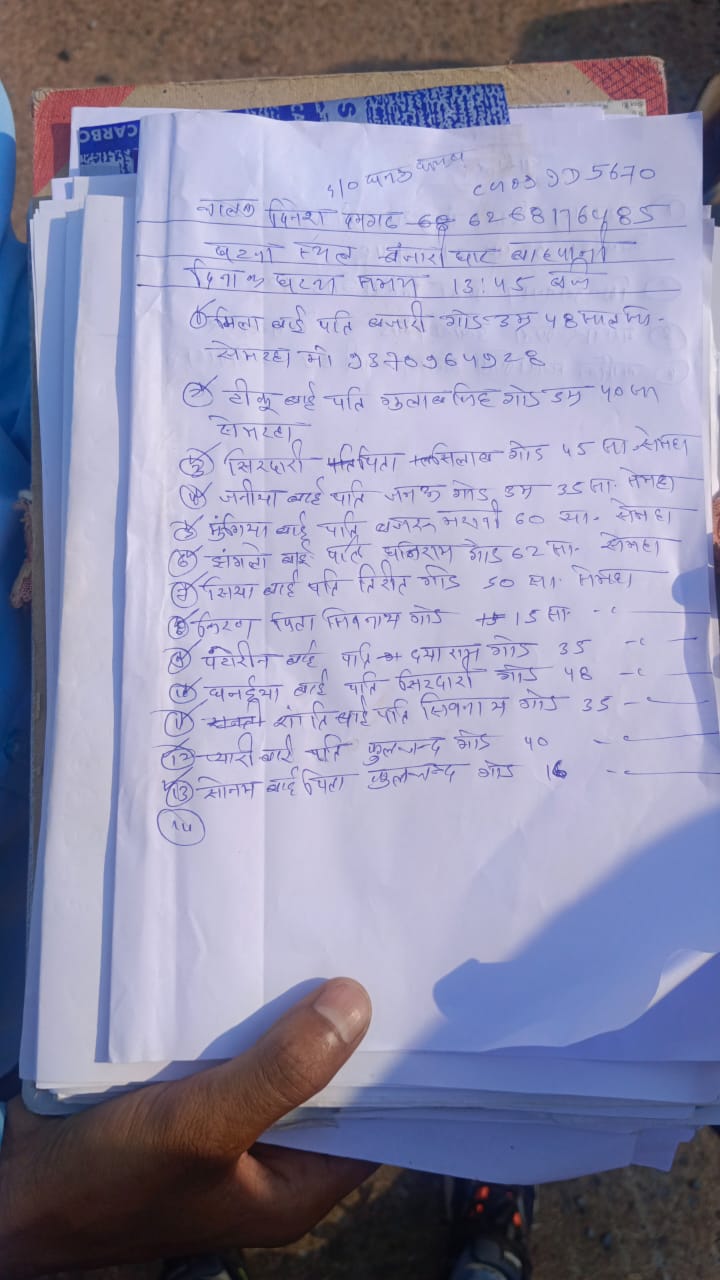 CARBO
S
CA
s/o
CG 09 JD 5670
चालक दिनेश 6268176485
घटना स्थल बंजारी घाट बाहपानी
दिनांक घटना समय 13:45 बजे
① मिला बाई पति बजारी गोंड उम्र 48 साल सा.
सेमरहा मो 9370964928
② टीकू बाई पति गुलाब सिंह गोंड उम्र 40 सा
सेमरहा
③ सिरदारी पिता गोंड 45 सा. सेमरहा
④ जनीया बाई पति जनक गोंड उम्र 35 सा. सेमरहा
⑤ मुंगिया बाई पति 60 सा. सेमरहा
⑥ झंगलो बाई पति धनिराम गोंड 62 सा. सेमरहा
⑦ सिया बाई पति गोंड 50 सा. सेमरहा
⑧ किरण पिता सिवनाथ गोंड 15 सा. -"-
⑨ पटोरीन बाई पति दयाराम गोंड 35 -"-
⑩ धनईया बाई पति सिरदारी गोंड 48 -"-
⑪ शांति बाई पति सिवनाथ गोंड 35 -"-
⑫ प्यारी बाई पति फुलचन्द गोंड 40 -"-
⑬ सोनम बाई पिता फुलचन्द गोंड 16 -"-
⑭